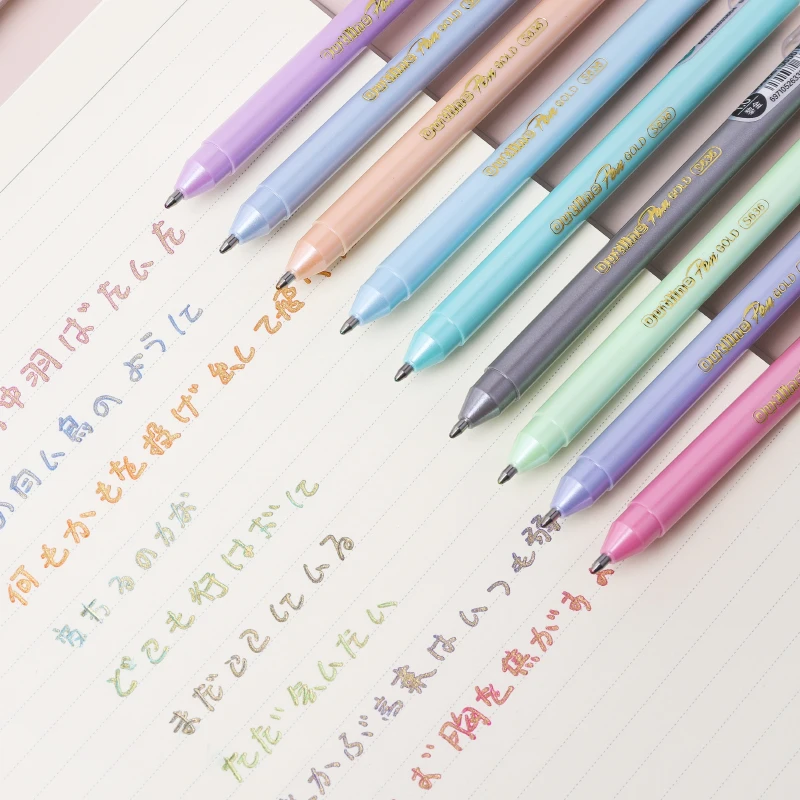 Outline
Outline Pen GOLD
Outline Pen GOLD S636
Outline Pen GOLD S636
Outline Pen GOLD S636
Outline Pen GOLD S636
Outline Pen GOLD S636
Outline Pen GOLD
Outline
羽ばたいた
い鳥のように
何もかもを投げ して
わるのカが
どこも行けばに
まだここしている
ただ んだい
かぶ言葉はいつも
胸を焦がすの